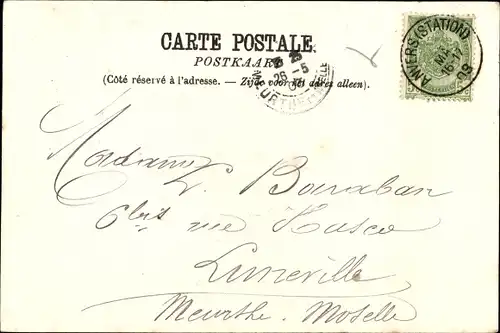 CARTE POSTALE.
POSTKAART
(Côté réservé à l'adresse. — Zijde voor het adres alleen).
ANVERS (STATION)
MAI
Madame
L. Bouraban
6 bis rue Hasco
Luneville
Meurthe. Moselle